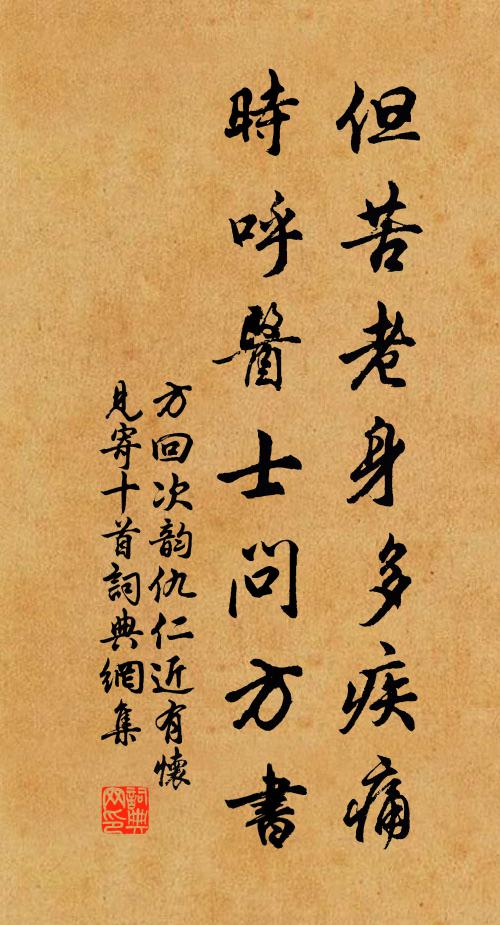 但苦老身多疾痛
時呼醫士問方書
方回次韵仇仁近有懷
見寄十首詞典網集
詞典網印